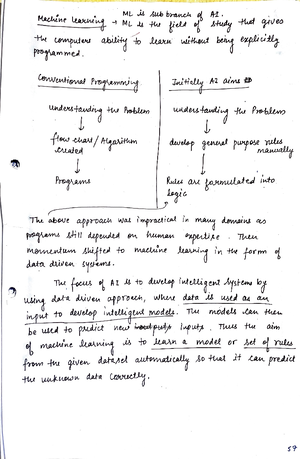 ML is sub branch of AI.
Machine learning → ML is the field of study that gives
the computers ability to learn without being explicitly
programmed.
Conventional Programming
Initially AI aims to
understanding the Problem
understanding the Problem
flow chars / Algarithm
created
develop general purpose rules
manually
Programs
Rules are formulated into
logic
The above approach was impractical in many domains as
programs still depended on human expertise. Then
momentum shifted to machine learning in the form of
data driven systems.
The focus of AI is to develop intelligent systems by
using data driven approach, where data is used as an
input to develop intelligent models. The models can then
be used to predict new inputs. Thus the aim
of machine learning is to learn a model or set of rules
from the given dataset automatically so that it can predict
the unknown data correctly.
57